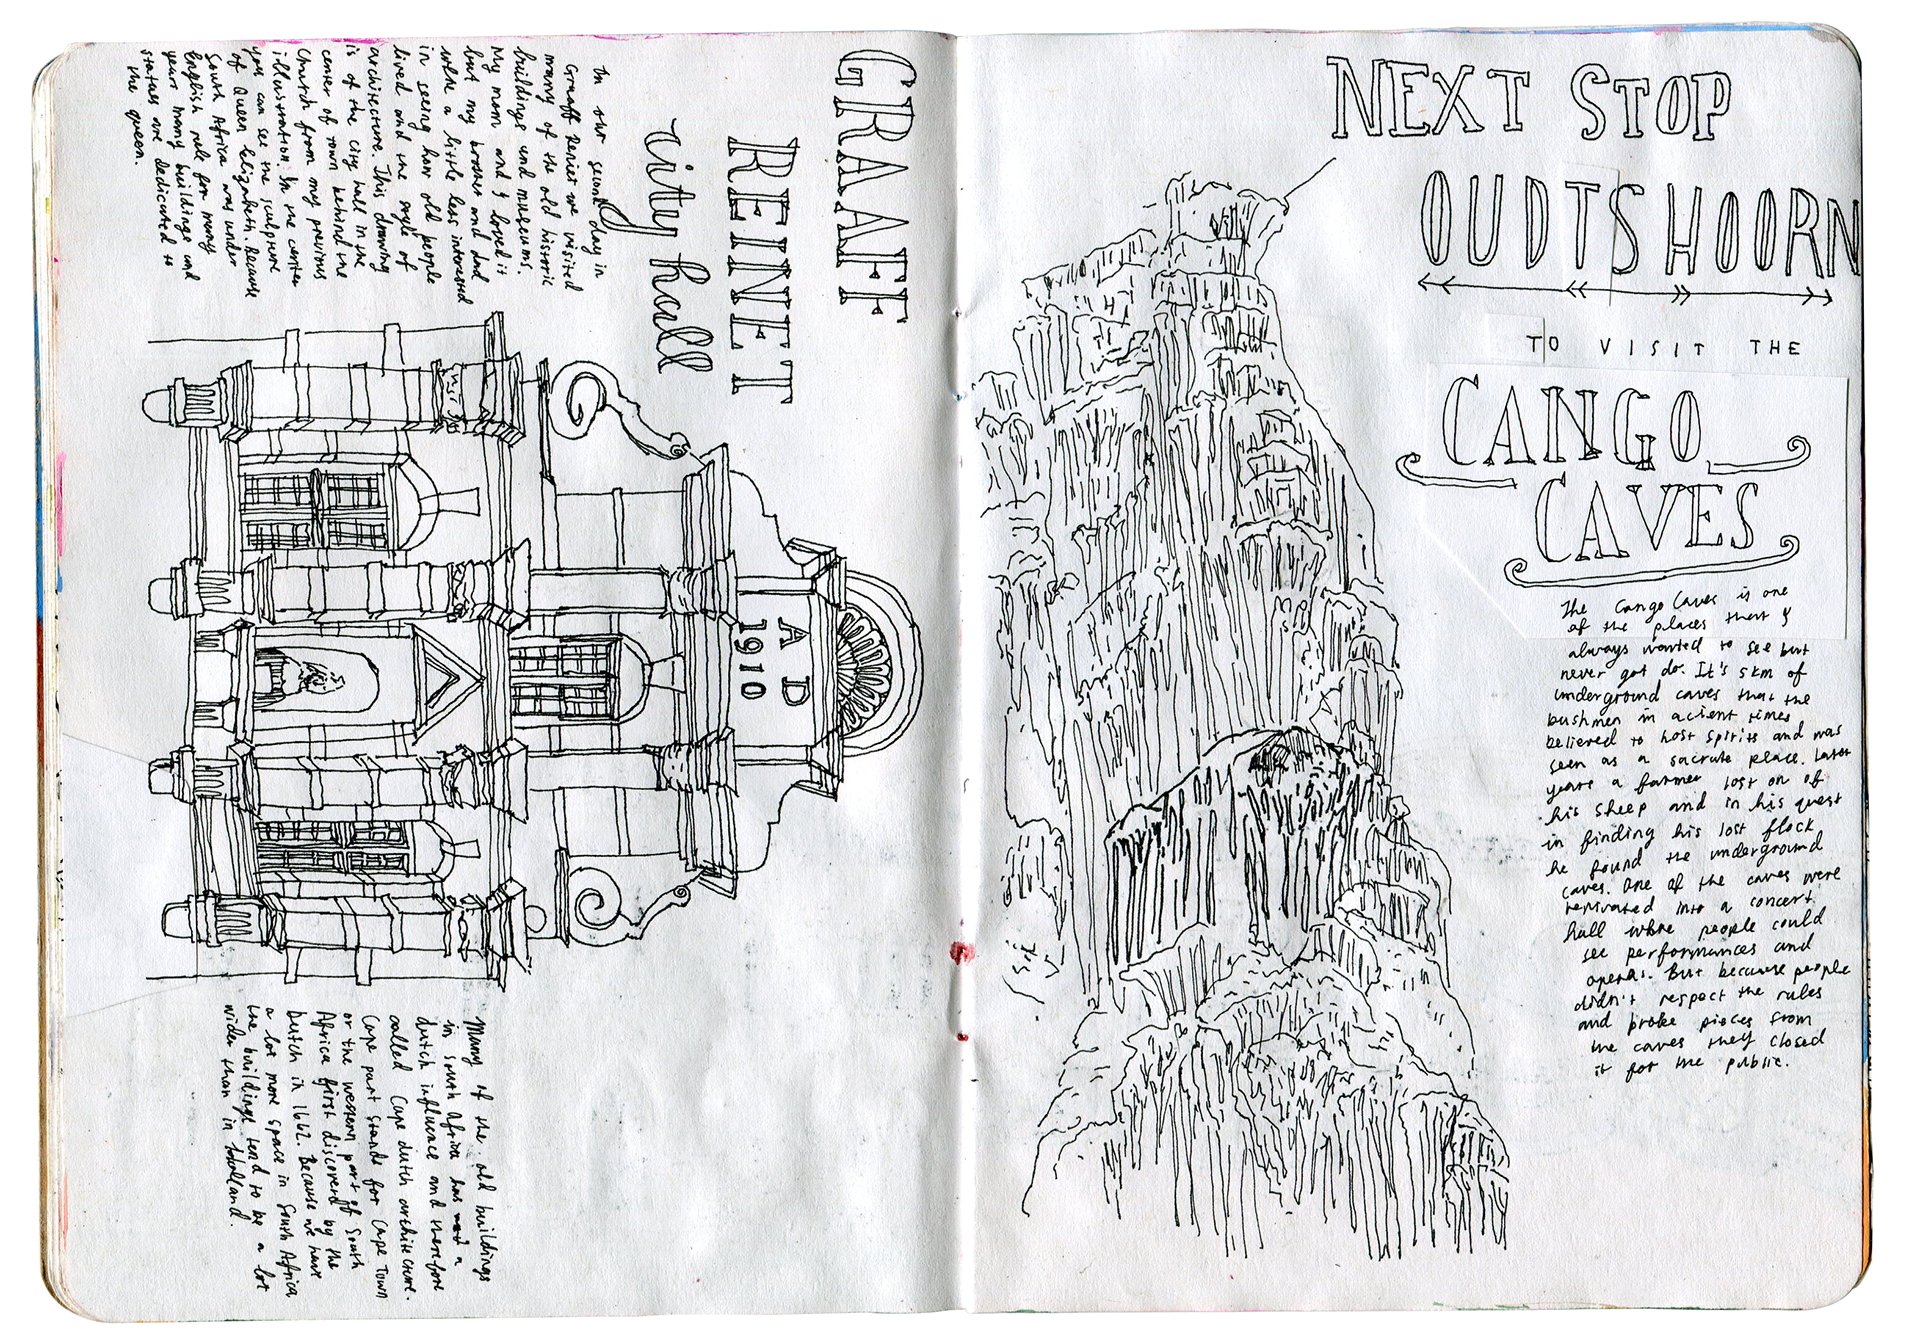 GRAAFF
REINET
city hall
On our second day in
Graaff Reniet we visited
many of the old historic
buildings and museums.
My mom and I loved it
but my brother and dad
where a little less interested
in seeing how old people
lived and the style of
architecture. This drawing
is of the city hall in the
center of town behind the
church from my previous
illustration. In the center
you can see the sculpture
of Queen Elizabeth. Because
South Africa was under
English rule for many
years many buildings and
statues are dedicated to
the queen.
A D
1910
Many of the old buildings
in South Africa has a
dutch influence and therefore
called Cape dutch architecture.
Cape part stands for Cape Town
or the western part of South
Africa first discovered by the
Dutch in 1662. Because we have
a lot more space in South Africa
the buildings tend to be a lot
wider than in Holland.
NEXT STOP
OUDTSHOORN
TO VISIT THE
CANGO
CAVES
The Cango Caves is one
of the places that I
always wanted to see but
never got do. It's 5km of
underground caves that the
bushmen in acient times
believed to host spirits and was
seen as a sacrate place. Later
years a farmer lost on of
his sheep and in his quest
in finding his lost flock
he found the underground
caves. One of the caves were
renivated into a concert
hall where people could
see performances and
operas. But because people
didn't respect the rules
and broke pieces from
the caves they closed
it for the public.